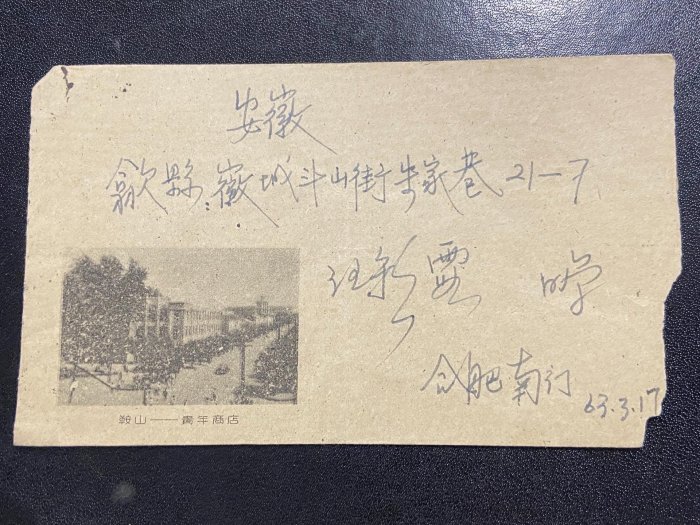 安徽
歙縣徽城斗山街朱家巷21-7
汪彩霞
合肥南行
63.3.17
鞍山——青年商店